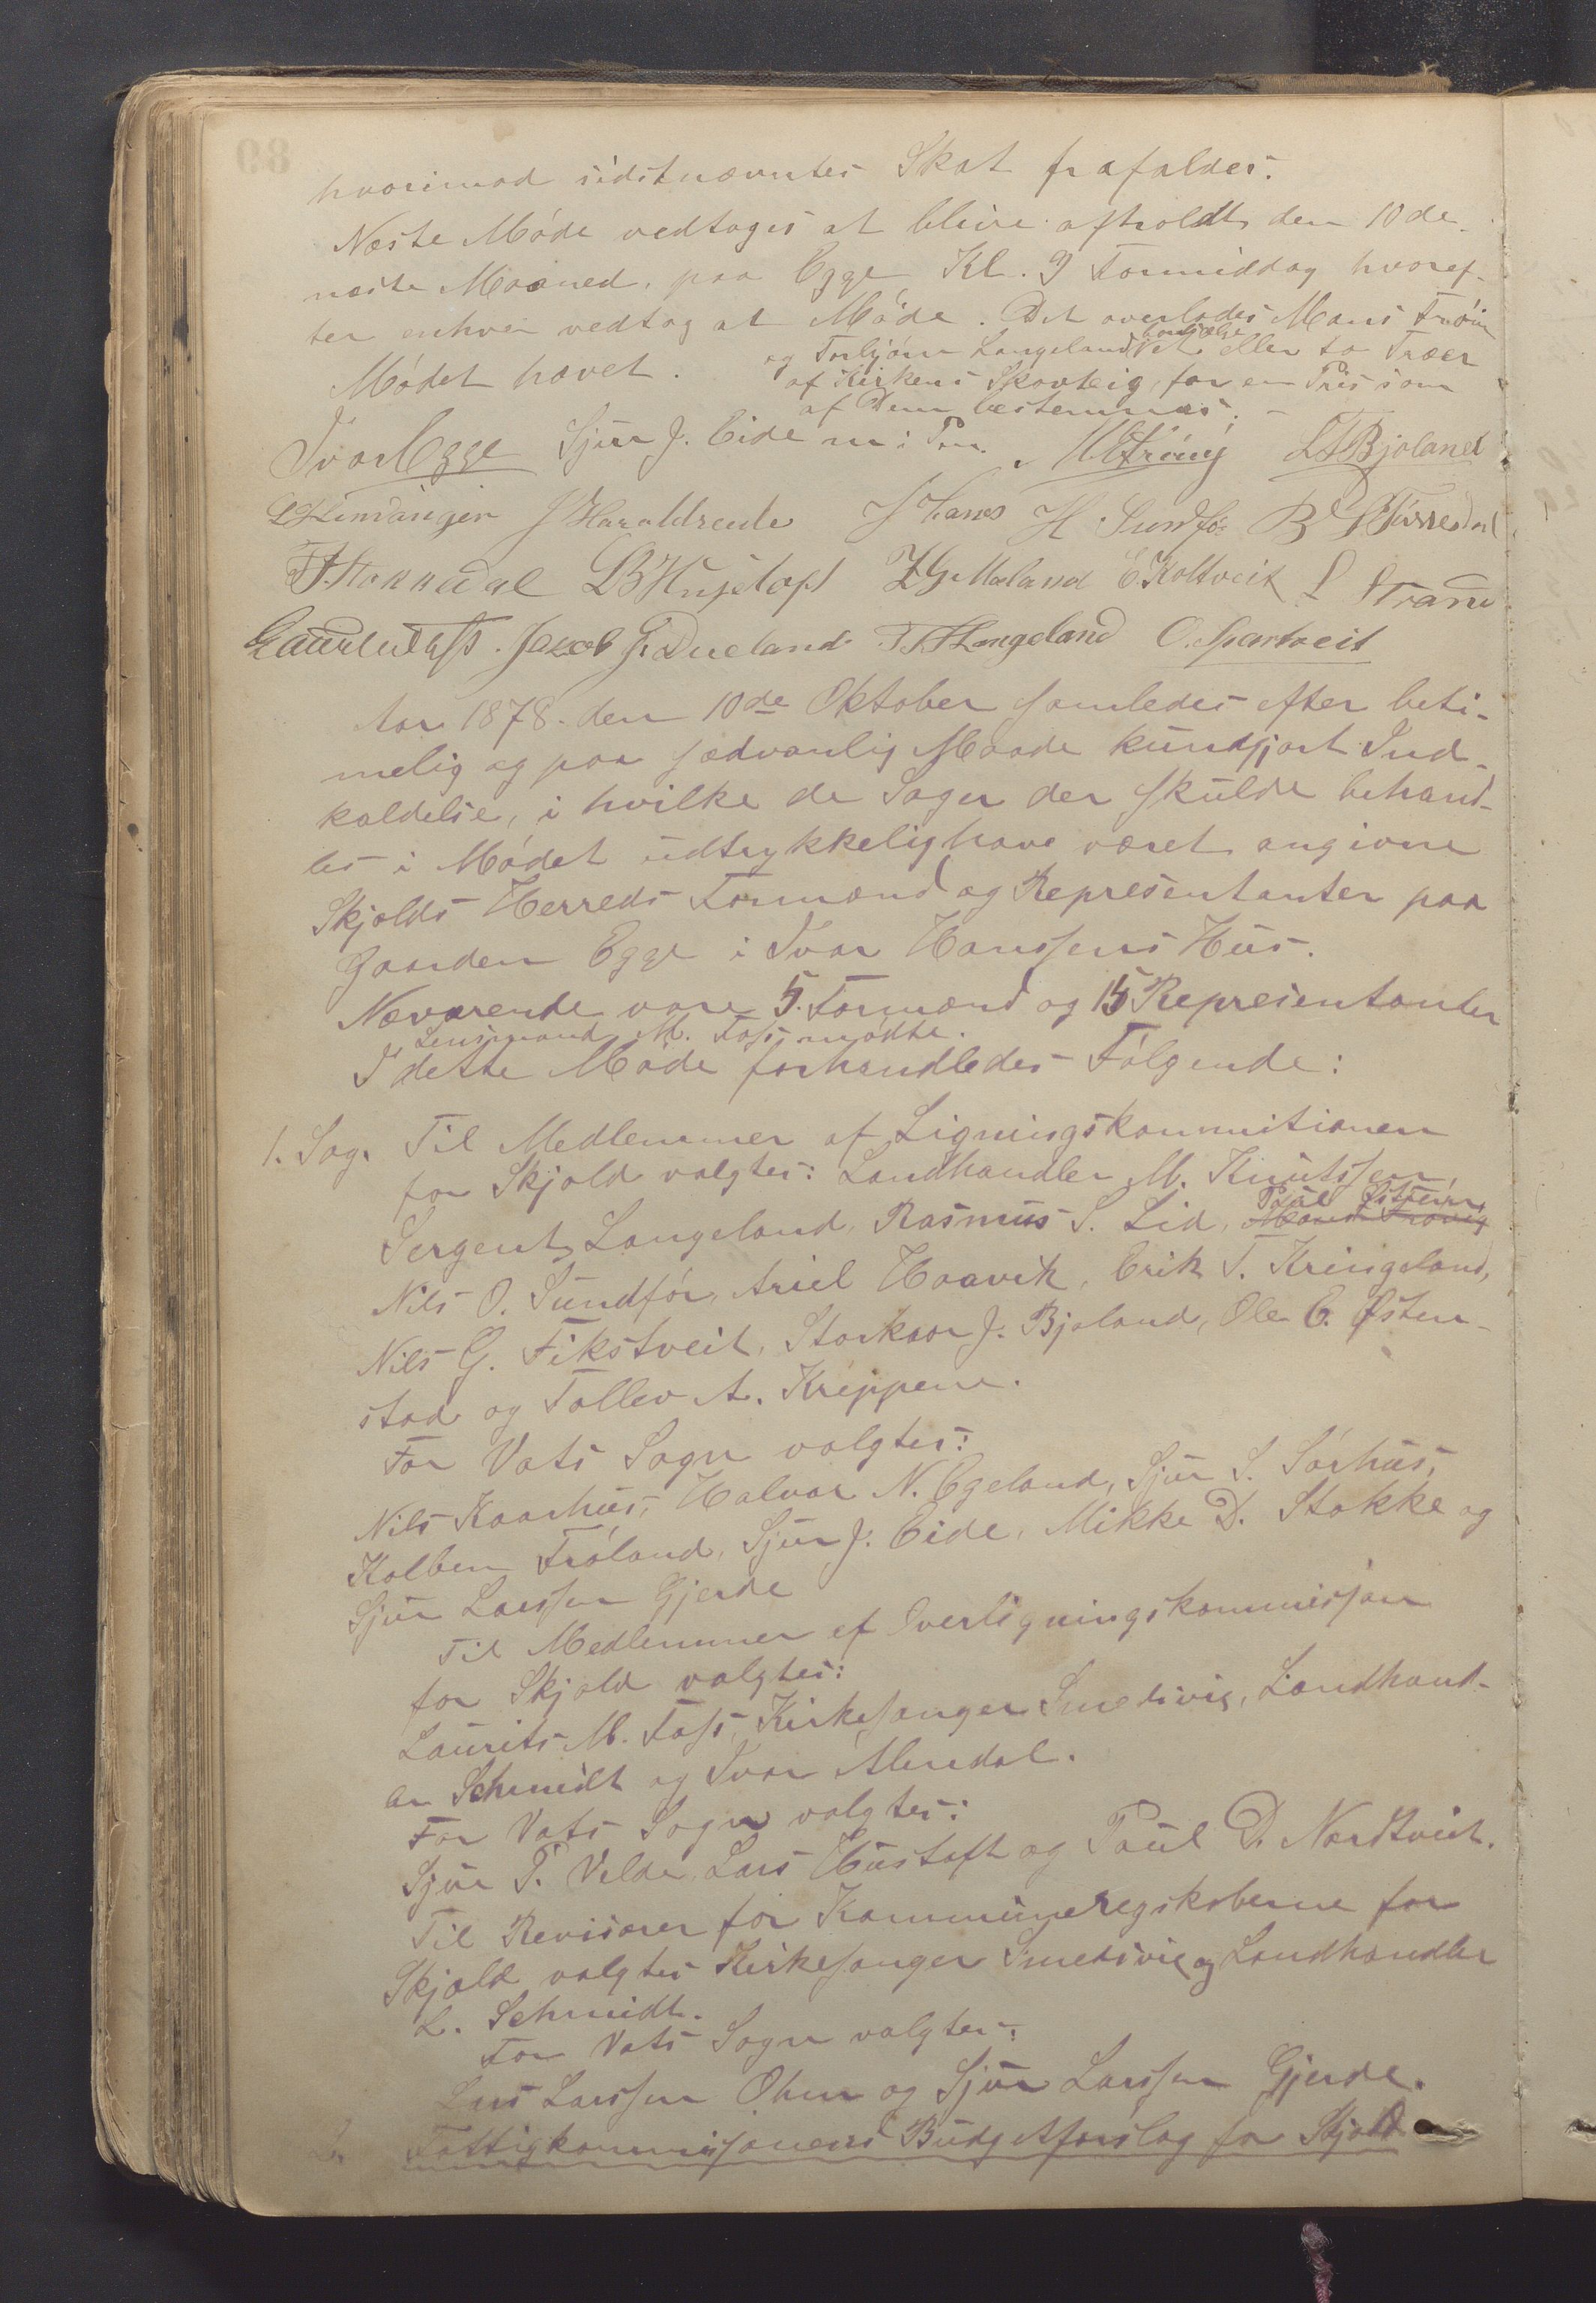 hvorimod sidstnævntes Skat frafaldes.
Næste Møde vedtages at blive afholdt den 10de
næste Maaned, paa Egge Kl. 9 Formiddag hvoref-
ter enhver vedtog at Møde. Det overlodes Mons Frøvig
og Torbjørn Langeland bortsælge et eller to Træer
Mødet hævet.
af Kirkens Skovteig for en Pris som
af Dem bestemmes. -
Ivar Egge Sjur J. Eide m i Pen. MFrövig LTBjoland
J Haraldseide Hans H. Sundför
T. Stakkadal LBHustoft E. Koltveit L Strand
Jacob J. Dueland. Langeland O. Spartveit
Aar 1878. den 10de Oktober samledes efter beti-
melig og paa sædvanlig Maade kundgjort Ind-
kaldelse, i hvilke de Sager der skulde behand-
les i Mødet udtrykkelig have været angivne
Skjolds Herreds Formænd og Repræsentanter paa
Gaarden Egge i Ivar Hanssens Hus.
Nærværende vare 5. Formænd og 15 Repræsentanter
Lensmand M. Foss mødte.
I dette Møde forhandledes Følgende:
1. Sag. Til Medlemmer af Ligningskommitionen
for Skjold valgtes: Landhandler M. Knutssen,
Sergent Langeland, Rasmus S. Lid, Mons Frøvig
Nils O. Sundför, Ariel Haavik, Erik T. Kringeland,
Nils G. Fikstveit, Storkaar J. Bjoland, Ole E. Østen-
stad og Tollev A. Kreppene.
For Vats Sogn valgtes:
Nils Kaarhus, Halvor N. Egeland, Sjur S. Sørhus,
Kolben Frøland, Sjur J. Eide, Mikke D. Stakke og
Sjur Larssen Gjerde
Til Medlemmer af Overligningskommissjon
for Skjold valgtes:
Laurits M. Foss, Kirkesanger Smedsvig, Landhand-
ler Schmidt og Ivar Alendal.
For Vats Sogn valgtes:
Sjur P. Velde, Lars Hustoft og Paul D. Nordtveit.
Til Revisorer for Kommuneregskaberne for
Skjold valgtes Kirkesanger Smedsvig og Landhandler
L. Schmidt.
For Vats Sogn valgtes:
Lars Larssen Øhrn og Sjur Larssen Gjerde.
2. Fattigkommissjonens Budgetforslag for Skjold